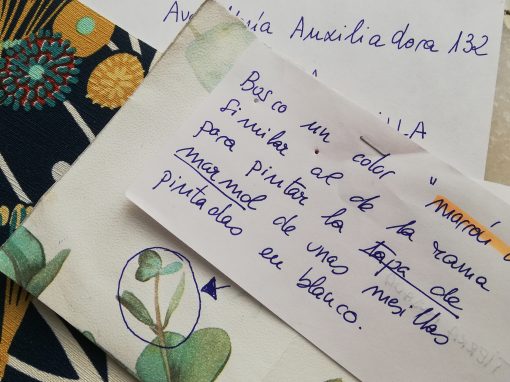 Mª Auxiliadora 132
Busco un color "marrón
similar al de la rama
para pintar la tapa de
marmol de unas mesillas
pintadas en blanco.